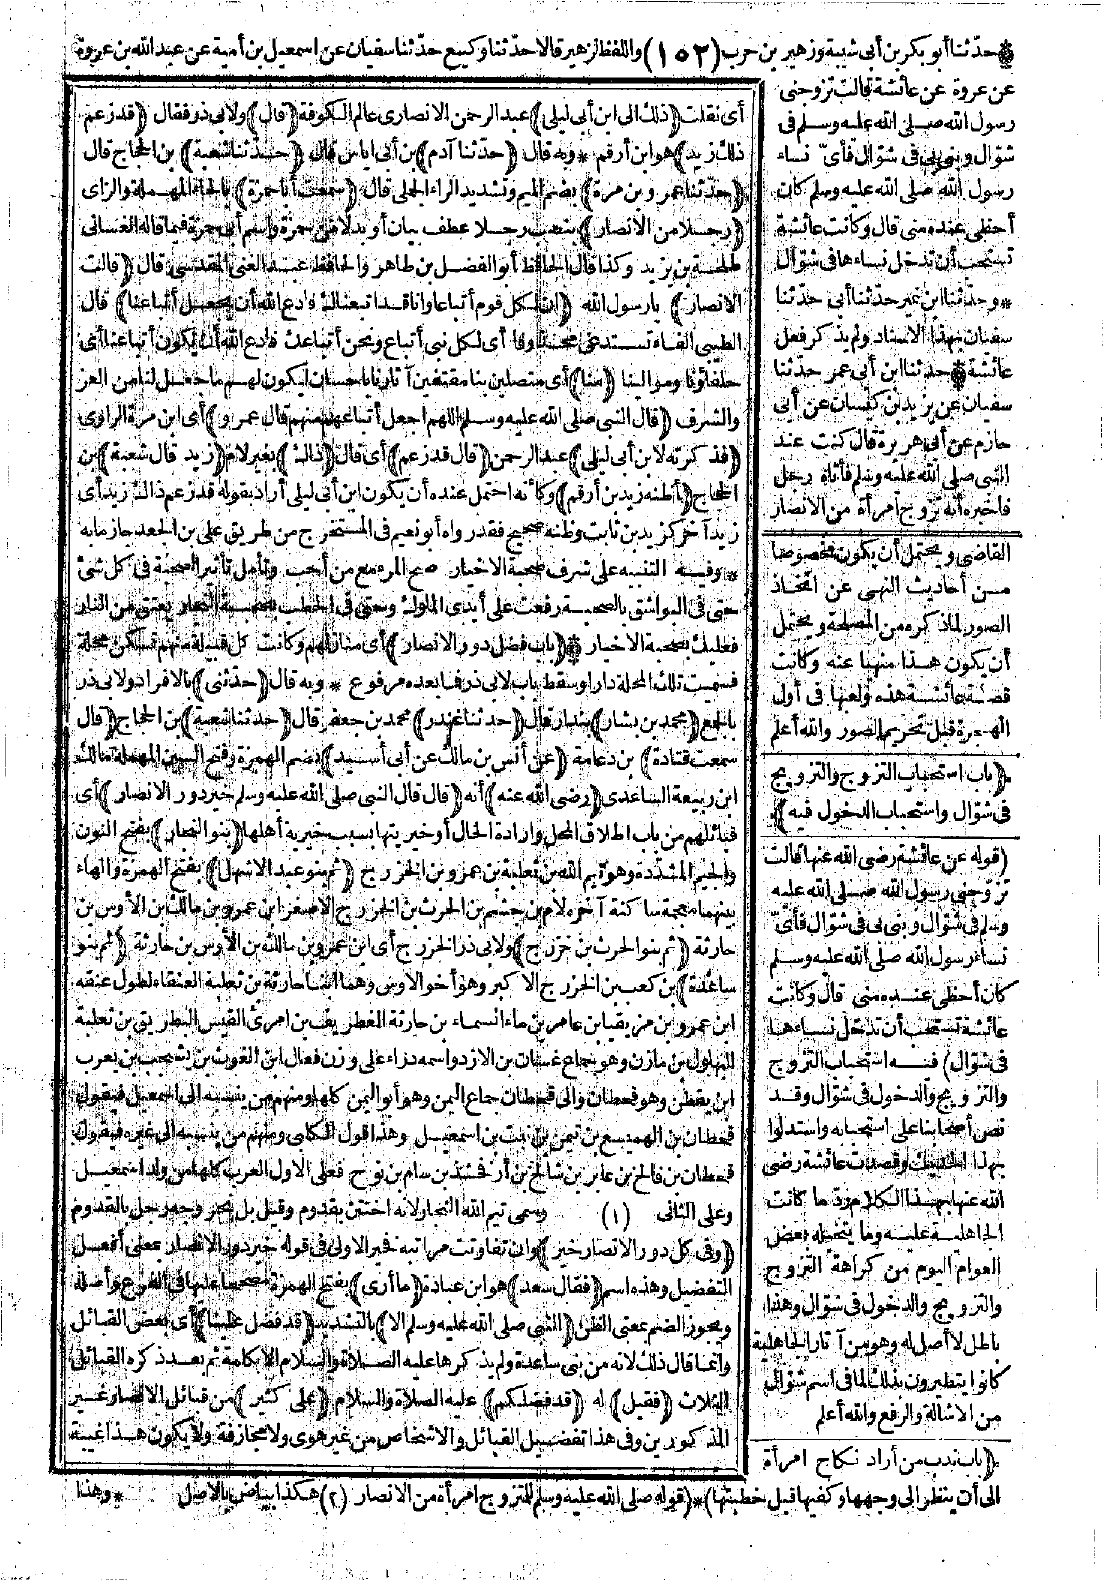 * حدثنا أبو بكر بن أبي شيبة وزهير بن حرب (١٥٢) واللفظ لزهير قالا حدثنا وكيع حدثنا سفيان عن اسمعيل بن أمية عن عبد الله بن عروة
عن عروة عن عائشة قالت تزوجني
رسول الله صلى الله عليه وسلم في
شوّال وبنى بي في شوّال فأيّ نساء
رسول الله صلى الله عليه وسلم كان
أحظى عنده مني قال وكانت عائشة
تستحب أن تدخل نساءها في شوّال
* وحدثنا ابن نمير حدثنا أبي حدثنا
سفيان بهذا الاسناد ولم يذكر فعل
عائشة * حدثنا ابن أبي عمر حدثنا
سفيان عن يزيد بن كيسان عن أبي
حازم عن أبي هريرة قال كنت عند
النبي صلى الله عليه وسلم فأتاه رجل
فأخبره أنه تزوج امرأة من الانصار
القاضي ويحتمل أن يكون مخصوصا
من أحاديث النهي عن اتخاذ
الصور لما ذكره من المصلحة ويحتمل
أن يكون هذا منهيا عنه وكانت
قصة عائشة هذه ولعبها في أول
الهجرة قبل تحريم الصور والله أعلم
(باب استحباب التزوج والتزويج
في شوّال واستحباب الدخول فيه)
(قوله عن عائشة رضي الله عنها قالت
تزوجني رسول الله صلى الله عليه
وسلم في شوّال وبنى بي في شوّال فأيّ
نساء رسول الله صلى الله عليه وسلم
كان أحظى عنده مني قال وكانت
عائشة تستحب أن تدخل نساءها
في شوّال) فيه استحباب التزوج
والتزويج والدخول في شوّال وقد
نص أصحابنا على استحبابه واستدلوا
بهذا الحديث وقصدت عائشة رضي
الله عنها بهذا الكلام رد ما كانت
الجاهلية عليه وما يتخيله بعض
العوام اليوم من كراهة التزوج
والتزويج والدخول في شوّال وهذا
باطل لا أصل له وهو من آثار الجاهلية
كانوا يتطيرون بذلك لما في اسم شوّال
من الاشالة والرفع والله أعلم
(باب ندب من أراد نكاح امرأة
الى أن ينظر الى وجهها وكفيها قبل خطبتها) * (قوله صلى الله عليه وسلم للمتزوج امرأة من الانصار (٢) هكذا بياض بالاصل * وهذا
أي نقلت (ذلك الى ابن أبي ليلى) عبد الرحمن الانصاري عالم الكوفة (قال) ولابي ذر فقال (قد زعم
ذلك زيد) هو ابن أرقم * وبه قال (حدثنا آدم) بن أبي اياس قال (حدثنا شعبة) بن الحجاج قال
(حدثنا عمرو بن مرة) بضم الميم وتشديد الراء الجملي قال (سمعت أبا حمزة) بالحاء المهملة والزاي
(رجلا من الانصار) بنصب رجلا عطف بيان أو بدلا من حمزة واسم أبي حمزة فيما قاله الغساني
طلحة بن يزيد وكذا قال الحافظ أبو الفضل بن طاهر والحافظ عبد الغني المقدسي قال (قالت
الانصار) يا رسول الله (ان لكل قوم أتباعا وانا قد اتبعناك فادع الله أن يجعل أتباعنا) قال
الطيبي الفاء تستدعي محذوفا أي لكل نبي أتباع ونحن أتباعك فادع الله أن يكون أتباعنا أي
حلفاؤنا وموالينا (منا) أي متصلين بنا مقتفين آثارنا باحسان ليكون لهم ما جعل لنا من العز
والشرف (قال النبي صلى الله عليه وسلم اللهم اجعل أتباعهم منهم قال عمرو) أي ابن مرة الراوي
(فذكرته لابن أبي ليلى) عبد الرحمن (قال قد زعم) أي قال (ذاك) بغير لام (زيد قال شعبة) بن
الحجاج (أظنه زيد بن أرقم) وكأنه احتمل عنده أن يكون ابن أبي ليلى أراد بقوله قد زعم ذلك زيد أي
زيد آخر كزيد بن ثابت وظنه صحيح فقد رواه أبو نعيم في المستخرج من طريق علي بن الجعد جازما به
* وفيه التنبيه على شرف صحبة الاخيار صح المرء مع من أحب وتأمل تأثير الصحبة في كل شيء
حتى في البواشق بالصحبة رفعت على أيدي الملوك وحتى في الحطب بصحبة النجار يعتق من النار
فعليك بصحبة الاخيار * (باب فضل دور الانصار) أي منازلهم وكانت كل قبيلة منهم تسكن محلة
فسميت تلك المحلة دارا وسقط باب لابي ذر فما بعده مرفوع * وبه قال (حدثني) بالافراد ولابي ذر
بالجمع (محمد بن بشار) بندار قال (حدثنا غندر) محمد بن جعفر قال (حدثنا شعبة) بن الحجاج (قال
سمعت قتادة) بن دعامة (عن أنس بن مالك عن أبي أسيد) بضم الهمزة وفتح السين المهملة مالك
ابن ربيعة الساعدي (رضي الله عنه) أنه (قال قال النبي صلى الله عليه وسلم خير دور الانصار) أي
قبائلهم من باب اطلاق المحل وارادة الحال أو خيريتها بسبب خيرية أهلها (بنو النجار) بفتح النون
والجيم المشددة وهو تيم الله بن ثعلبة بن عمرو بن الخزرج (ثم بنو عبد الاشهل) بفتح الهمزة والهاء
بينهما معجمة ساكنة آخره لام بن جشم بن الحرث بن الخزرج الاصغر ابن عمرو بن مالك بن الأوس بن
حارثة (ثم بنو الحرث بن خزرج) ولابي ذر الخزرج أي ابن عمرو بن مالك بن الأوس بن حارثة (ثم بنو
ساعدة) بن كعب بن الخزرج الاكبر وهو أخو الاوس وهما ابنا حارثة بن ثعلبة العنقاء لطول عنقه
ابن عمرو بن مزيقيا بن عامر بن ماء السماء بن حارثة الغطريف بن امرئ القيس البطريق بن ثعلبة
البهلول بن مازن وهو جماع غسان بن الازد واسمه دراء على وزن فعال ابن الغوث بن يشجب بن يعرب
ابن يقطن وهو قحطان والى قحطان جماع اليمن وهو أبو اليمن كلها ومنهم من ينسبه الى اسمعيل فيقول
قحطان بن الهميسع بن تيمن بن نبت بن اسمعيل وهذا قول الكلبي ومنهم من ينسبه الى غيره فيقول
قحطان بن فالخ بن عابر بن شالخ بن أرفخشذ بن سام بن نوح فعلى الاول العرب كلها من ولد اسمعيل
وعلى الثاني (١) وسمي تيم الله النجار لانه اختتن بقدوم وقيل بل نجر وجه رجل بالقدوم
(وفي كل دور الانصار خير) وان تفاوتت مراتبه فخير الاولى في قوله خير دور الانصار بمعنى أفعل
التفضيل وهذه اسم (فقال سعد) هو ابن عبادة (ما أرى) بفتح الهمزة مصححا عليها في الفرع وأصله
ويجوز الضم بمعنى الظن (النبي صلى الله عليه وسلم الا) بالتشديد (قد فضل علينا) أي بعض القبائل
وانما قال ذلك لانه من بني ساعدة ولم يذكرها عليه الصلاة والسلام الا بكلمة ثم بعد ذكره القبائل
الثلاث (فقيل) له (قد فضلكم) عليه الصلاة والسلام (على كثير) من قبائل الانصار غير
المذكورين وفي هذا تفضيل القبائل والاشخاص من غير هوى ولا مجازفة ولا يكون هذا غيبة